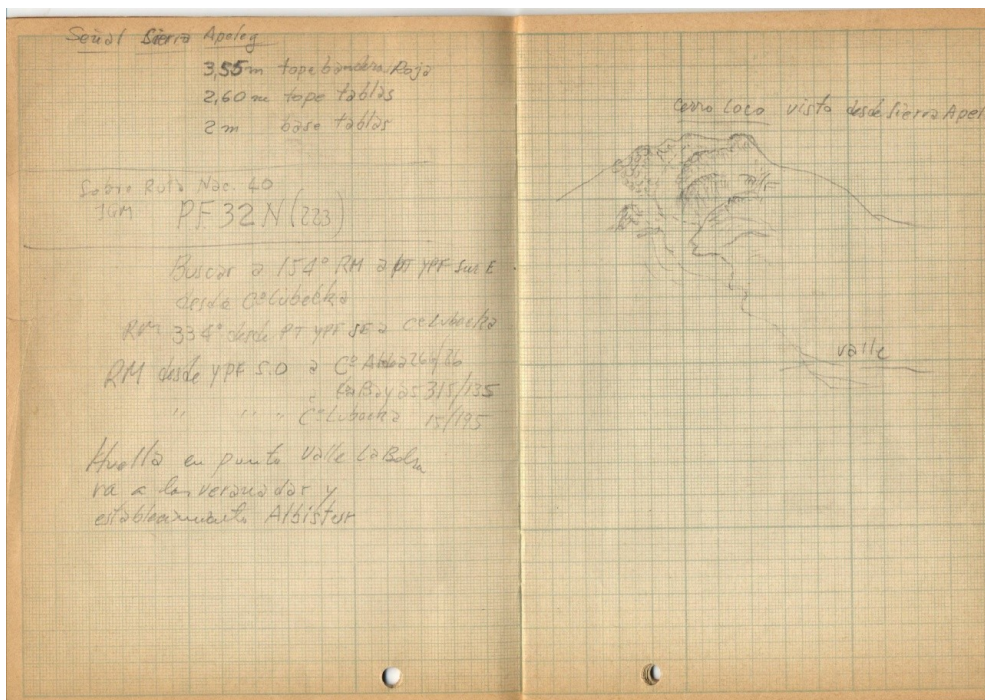 Señal Sierra Apeleg
3,55 m tope bandera Roja
2,60 m tope tablas
2 m base tablas
Sobre Ruta Nac. 40
IGM PF 32 N (223)
Buscar a 154° RM a PT YPF Sur E
desde Cº Lubecka
RM 334° desde PT YPF SE a Cº Lubecka
RM desde YPF S.O a Cº
315/135
" " " Cº Lubecka 15/195
Huella en punto Valle La Bolsa
va a las veranadas y
establecimiento Albistur
cerro Loco visto desde Sierra Apel
valle